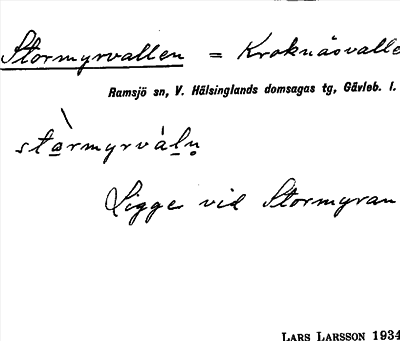 Stormyrvallen = Kroknäsvalle
Ramsjö sn, V. Hälsinglands domsagas tg, Gävleb. l.
stàrmyrváln̥
Ligger vid Stormyran
LARS LARSSON 1934